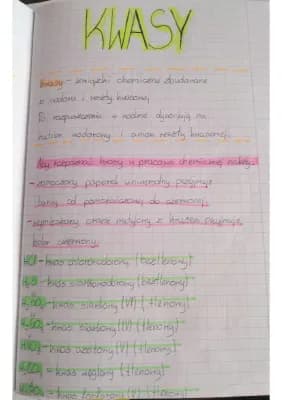 KWASY
Kwasy - związki chemiczne zbudowane
z wodoru i reszty kwasowej
W rozpuszczeniu w wodzie dysocjują na
kation wodorowy i anion reszty kwasowej.
Aby rozpoznać kwasy w pracowni chemicznej należy:
- zwilżony papierek uniwersalny przyjmuje
barwę od pomarańczowej do czerwonej,
- oranż metylowy z kwasem przyjmuje
kolor czerwony.
HCl - kwas chlorowodorowy (beztlenowy)
H₂S - kwas siarkowodorowy (beztlenowy)
H₂SO₄ - kwas siarkowy (VI) (tlenowy)
H₂SO₃ - kwas siarkowy (IV) (tlenowy)
HNO₃ - kwas azotowy (V) (tlenowy)
H₂CO₃ - kwas węglowy (tlenowy)
H₃PO₄ - kwas fosforowy (V) (tlenowy)